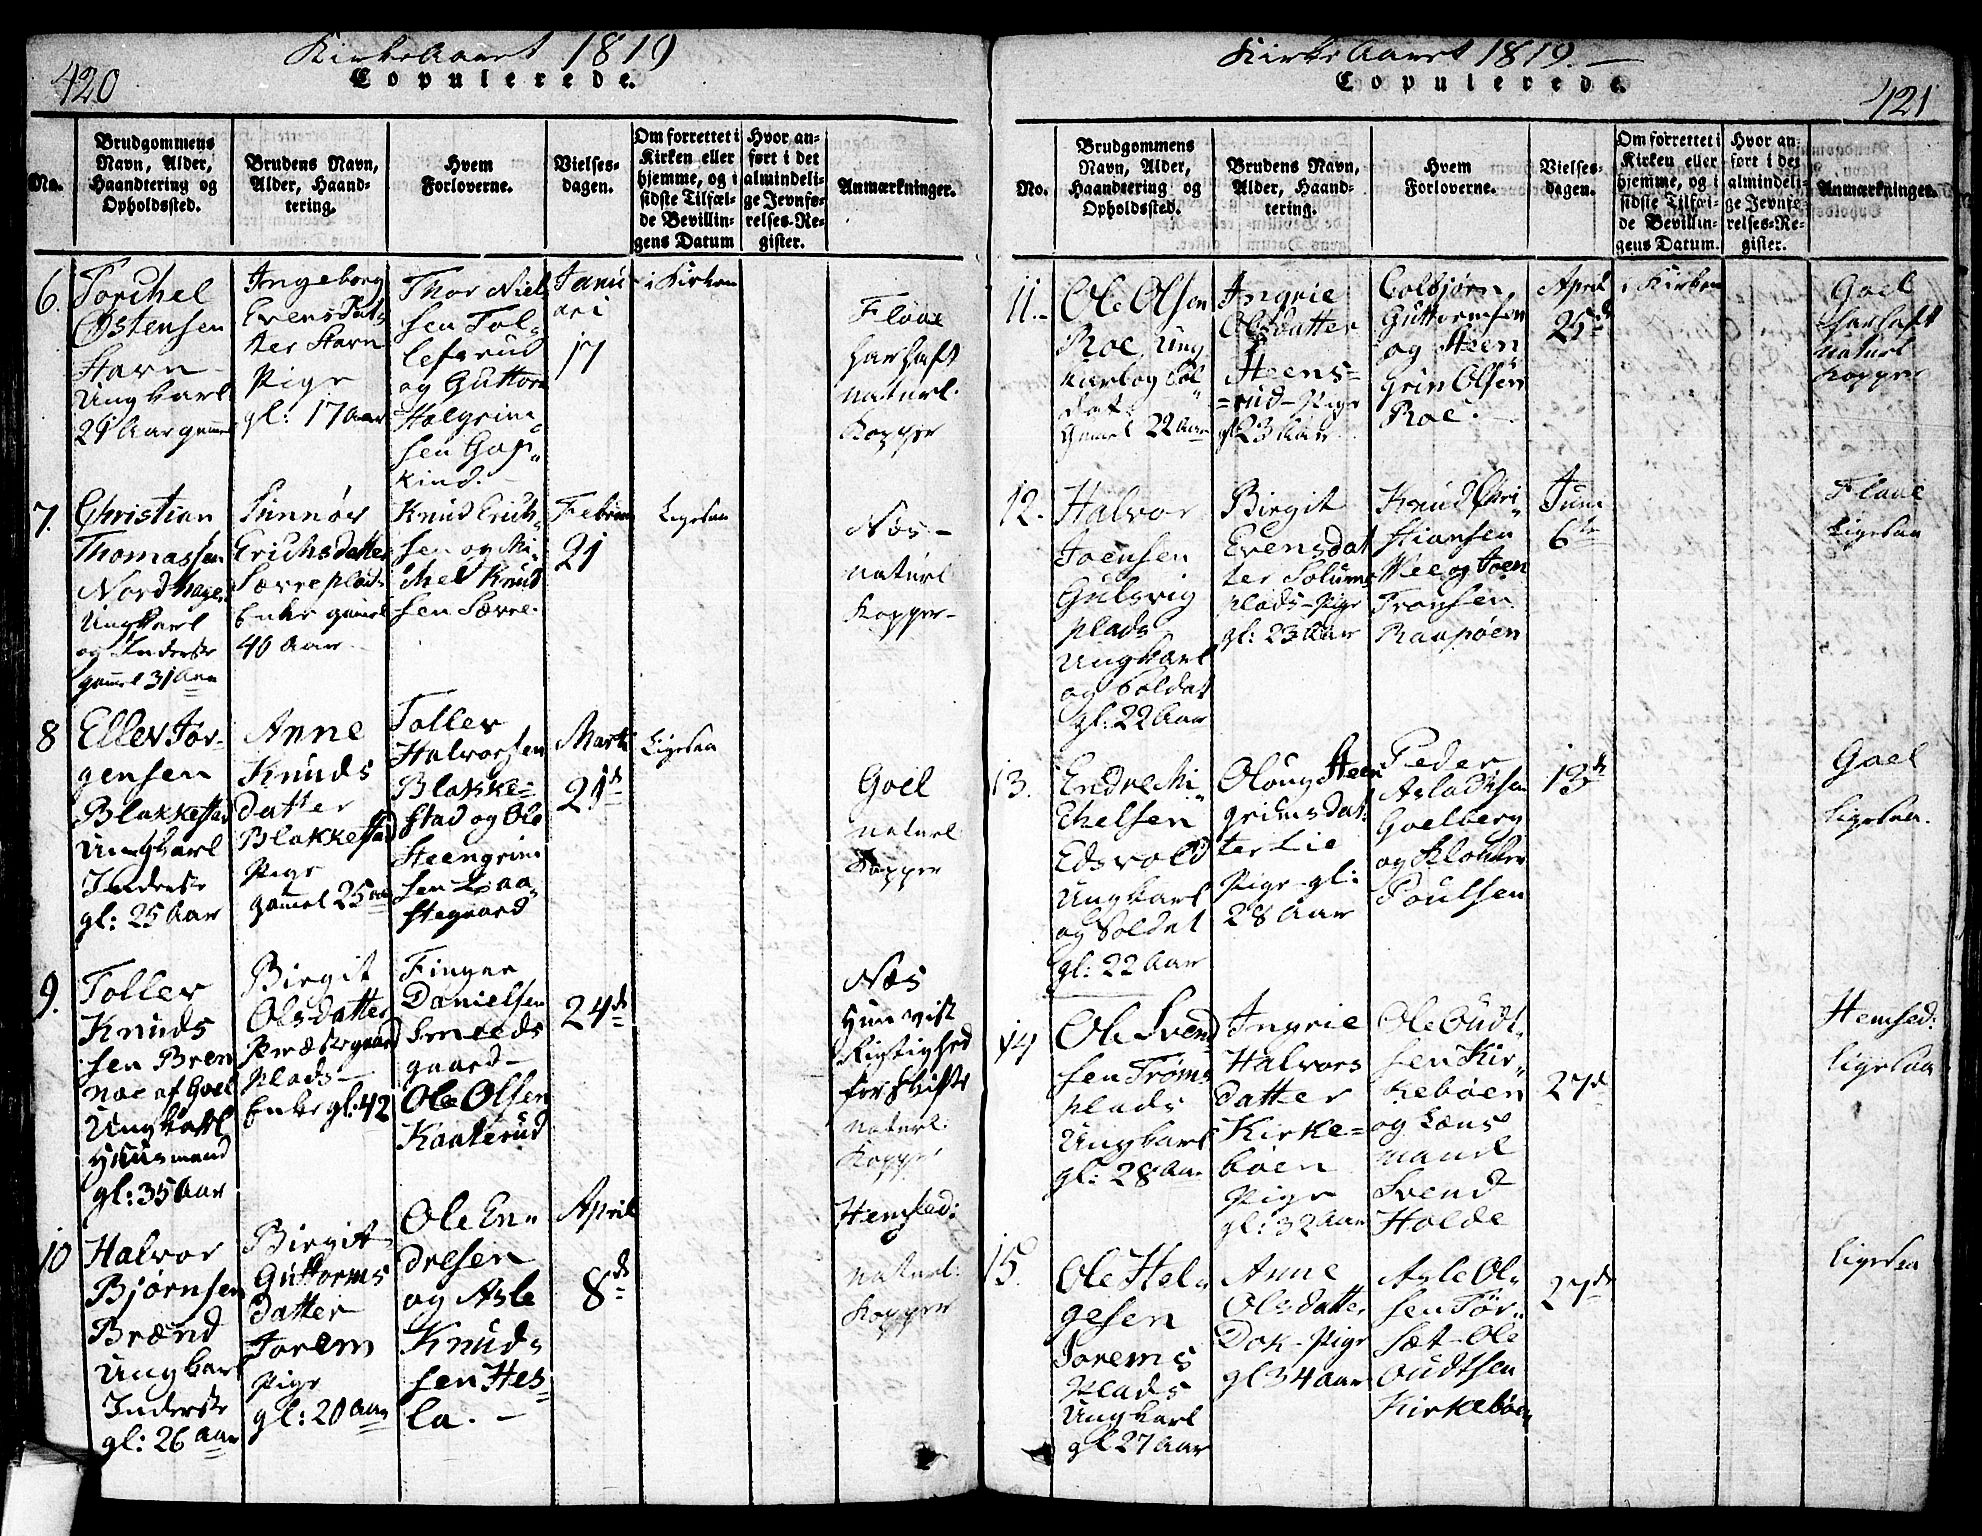 420
Kirke Aaret 1819
Copulerede.
No.
Brudgommens
Navn, Alder,
Haandtering og
Opholdssted.
Brudens Navn,
Alder, Haand-
tering.
Hvem
Forloverne.
Vielses-
dagen.
Om forrettet i
Kirken eller
hjemme, og i
sidste Tilfæl-
de Bevillin-
gens Datum
Hvor an-
ført i det
almindeli-
ge Jevnfø-
relses-Re-
gister.
Anmærkninger.
6.
Torchel
Ostensen
Starn
Ungkarl
29 Aar gammel
Ingeborg
Evensdat-
ter Starn
Pige
gl: 17 Aar
Thor Niel
sen Tol-
lefsrud
og Guttorm
Holgrim-
sen Gap-
kind.
Janu
ari
17
i Kirken
Flaae
har haft
naturl.
Kopper
7.
Christian
Thomassen
Nordhagen
Ungkarl
og Inderste
gammel 31 Aar
Sunnøv
Erichsdatter
Særreplads
Enke gammel
40 Aar
Knud Erich-
sen og Mi-
chel Knud
sen Særre.
Februar
21
Ligesaa
Næs -
naturl
Kopper -
8
Eller Jør-
gensen
Blakkestad
Ungkarl
Inderste
gl: 25 Aar
Anne
Knuds
datter
Blakkestad
Pige
gammel 25 aar
Toller
Halvorsen
Blakke-
stad og Ole
Steengrim
sen Laa-
stegaard
Marti
21de
Ligesaa
Goel
naturl
Kopper
9.
Toller
Knuds
sen Bren
noe af Goel
Ungkarl
Huusmand
gl: 35 Aar
Birgit
Olsdatter
Præstegaard
Plads -
Enke gl: 42
Finger
Danielsen
Smeeds
gaard -
Ole Olsen
Kaaterud
24de
Næs
Hun vist
Rigtighed
for Skifte
naturl.
Kopper
10
Halvor
Bjørnsen
Brænd
Ungkarl
Inderste
gl: 26 aar
Birgit
Guttorms
datter
Jorem
Pige
gl: 20 Aar
Ole En-
dresen
og Asle
Knud-
sen Hes-
la. -
April
8de
Hemsed:
naturl.
Kopper
Kirke Aaret 1819. -
Copulerede.
421
No.
Brudgommens
Navn, Alder,
Haandtering og
Opholdssted.
Brudens Navn,
Alder, Haand-
tering.
Hvem
Forloverne.
Vielses-
dagen.
Om forrettet i
Kirken eller
hjemme, og i
sidste Tilfæl-
de Bevillin-
gens Datum.
Hvor an-
ført i det
almindeli-
ge Jevnfø-
relses-Re-
gister.
Anmærkninger.
11.
Ole Olsen
Roe, Ung
karl og Sol-
dat
Gammel 22 Aar
Ingrie
Olsdatter
Steens-
rud - Pige
gl 23 Aar
Colbjørn
Guttormsen
og Steen
grim Olsen
Roe.
April
25de
i Kirken
Goel
har haft
naturl
Kopper
12.
Halvor
Joensen
Gulsvig
plads
Ungkarl
og Soldat
gl: 22 Aar
Birgit
Evensdat
ter Solum
plads - Pige
gl: 23 Aar
Knud Chri-
stiansen
Wee og Joen
Tronsen
Raapøen
Juni
6te
Flaae
Ligesaa
13.
Endre Mi-
chelsen
Edsvold
Ungkarl
og Soldat
gl: 22 Aar
Oloug Steen
grimsdat-
ter Lie
Pige gl:
28 Aar
Peder
Asladssen
Goelberg
og Klokker
Poulsen
13de
Goel
Ligesaa.
14
Ole Svend
sen Trøms
plads
Ungkarl
gl: 28 Aar
Ingrie
Halvors
datter
Kirke-
bøen
Pige
gl: 32 Aar
Ole Oudt-
sen Kir-
kebøen
og Læns
mand
Svend
Holde
27de
Hemsed:
ligesaa
15.
Ole Hel-
gesen
Jorems
Plads
Ungkarl
gl 27 Aar
Anne
Olsdatter
Dok - Pige
gl 34 aar
Asle Ol-
sen Tør-
sæt - Ole
Oudtsen
Kirkebøen
27de
Ligesaa